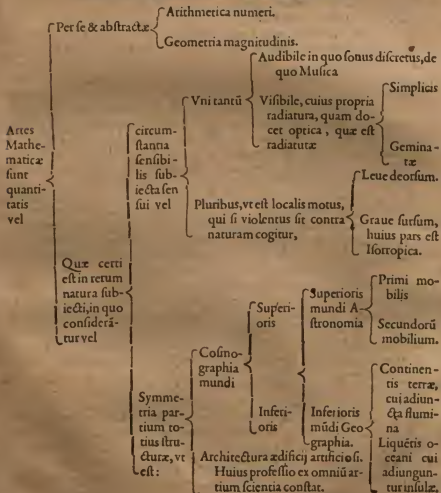 Artes
Mathe-
maticæ
sunt
quanti-
tatis
vel
Per se & abstractæ
Arithmetica numeri.
Geometria magnitudinis.
Quæ certi
est in rerum
natura sub-
iecti, in quo
considerã-
tur vel
circum-
stantia
sensibi-
lis sub-
iecta sen
sui vel
Vni tantũ
Audibile in quo sonus discretus, de
quo Musica
Visibile, cuius propria
radiatura, quam do-
cet optica, quæ est
radiaturæ
Simplicis
Gemina-
tæ
Pluribus, vt est localis motus,
qui si violentus sit contra
naturam cogitur,
Leue deorsum.
Graue sursum,
huius pars est
Isorropica.
Symme-
tria par-
tium to-
tius stru-
cturæ, vt
est:
Cosmo-
graphia
mundi
Superi-
oris
Inferi-
oris
Superioris
mundi A-
stronomia
Primi mo-
bilis
Secundorũ
mobilium.
Inferioris
mũdi Geo-
graphia.
Continen-
tis terræ,
cui adiun-
cta flumi-
na
Liquẽtis o-
ceani cui
adiungun-
tur insulæ.
Architectura ædificij artificiosi.
Huius professio ex omniũ ar-
tium scientia constat.